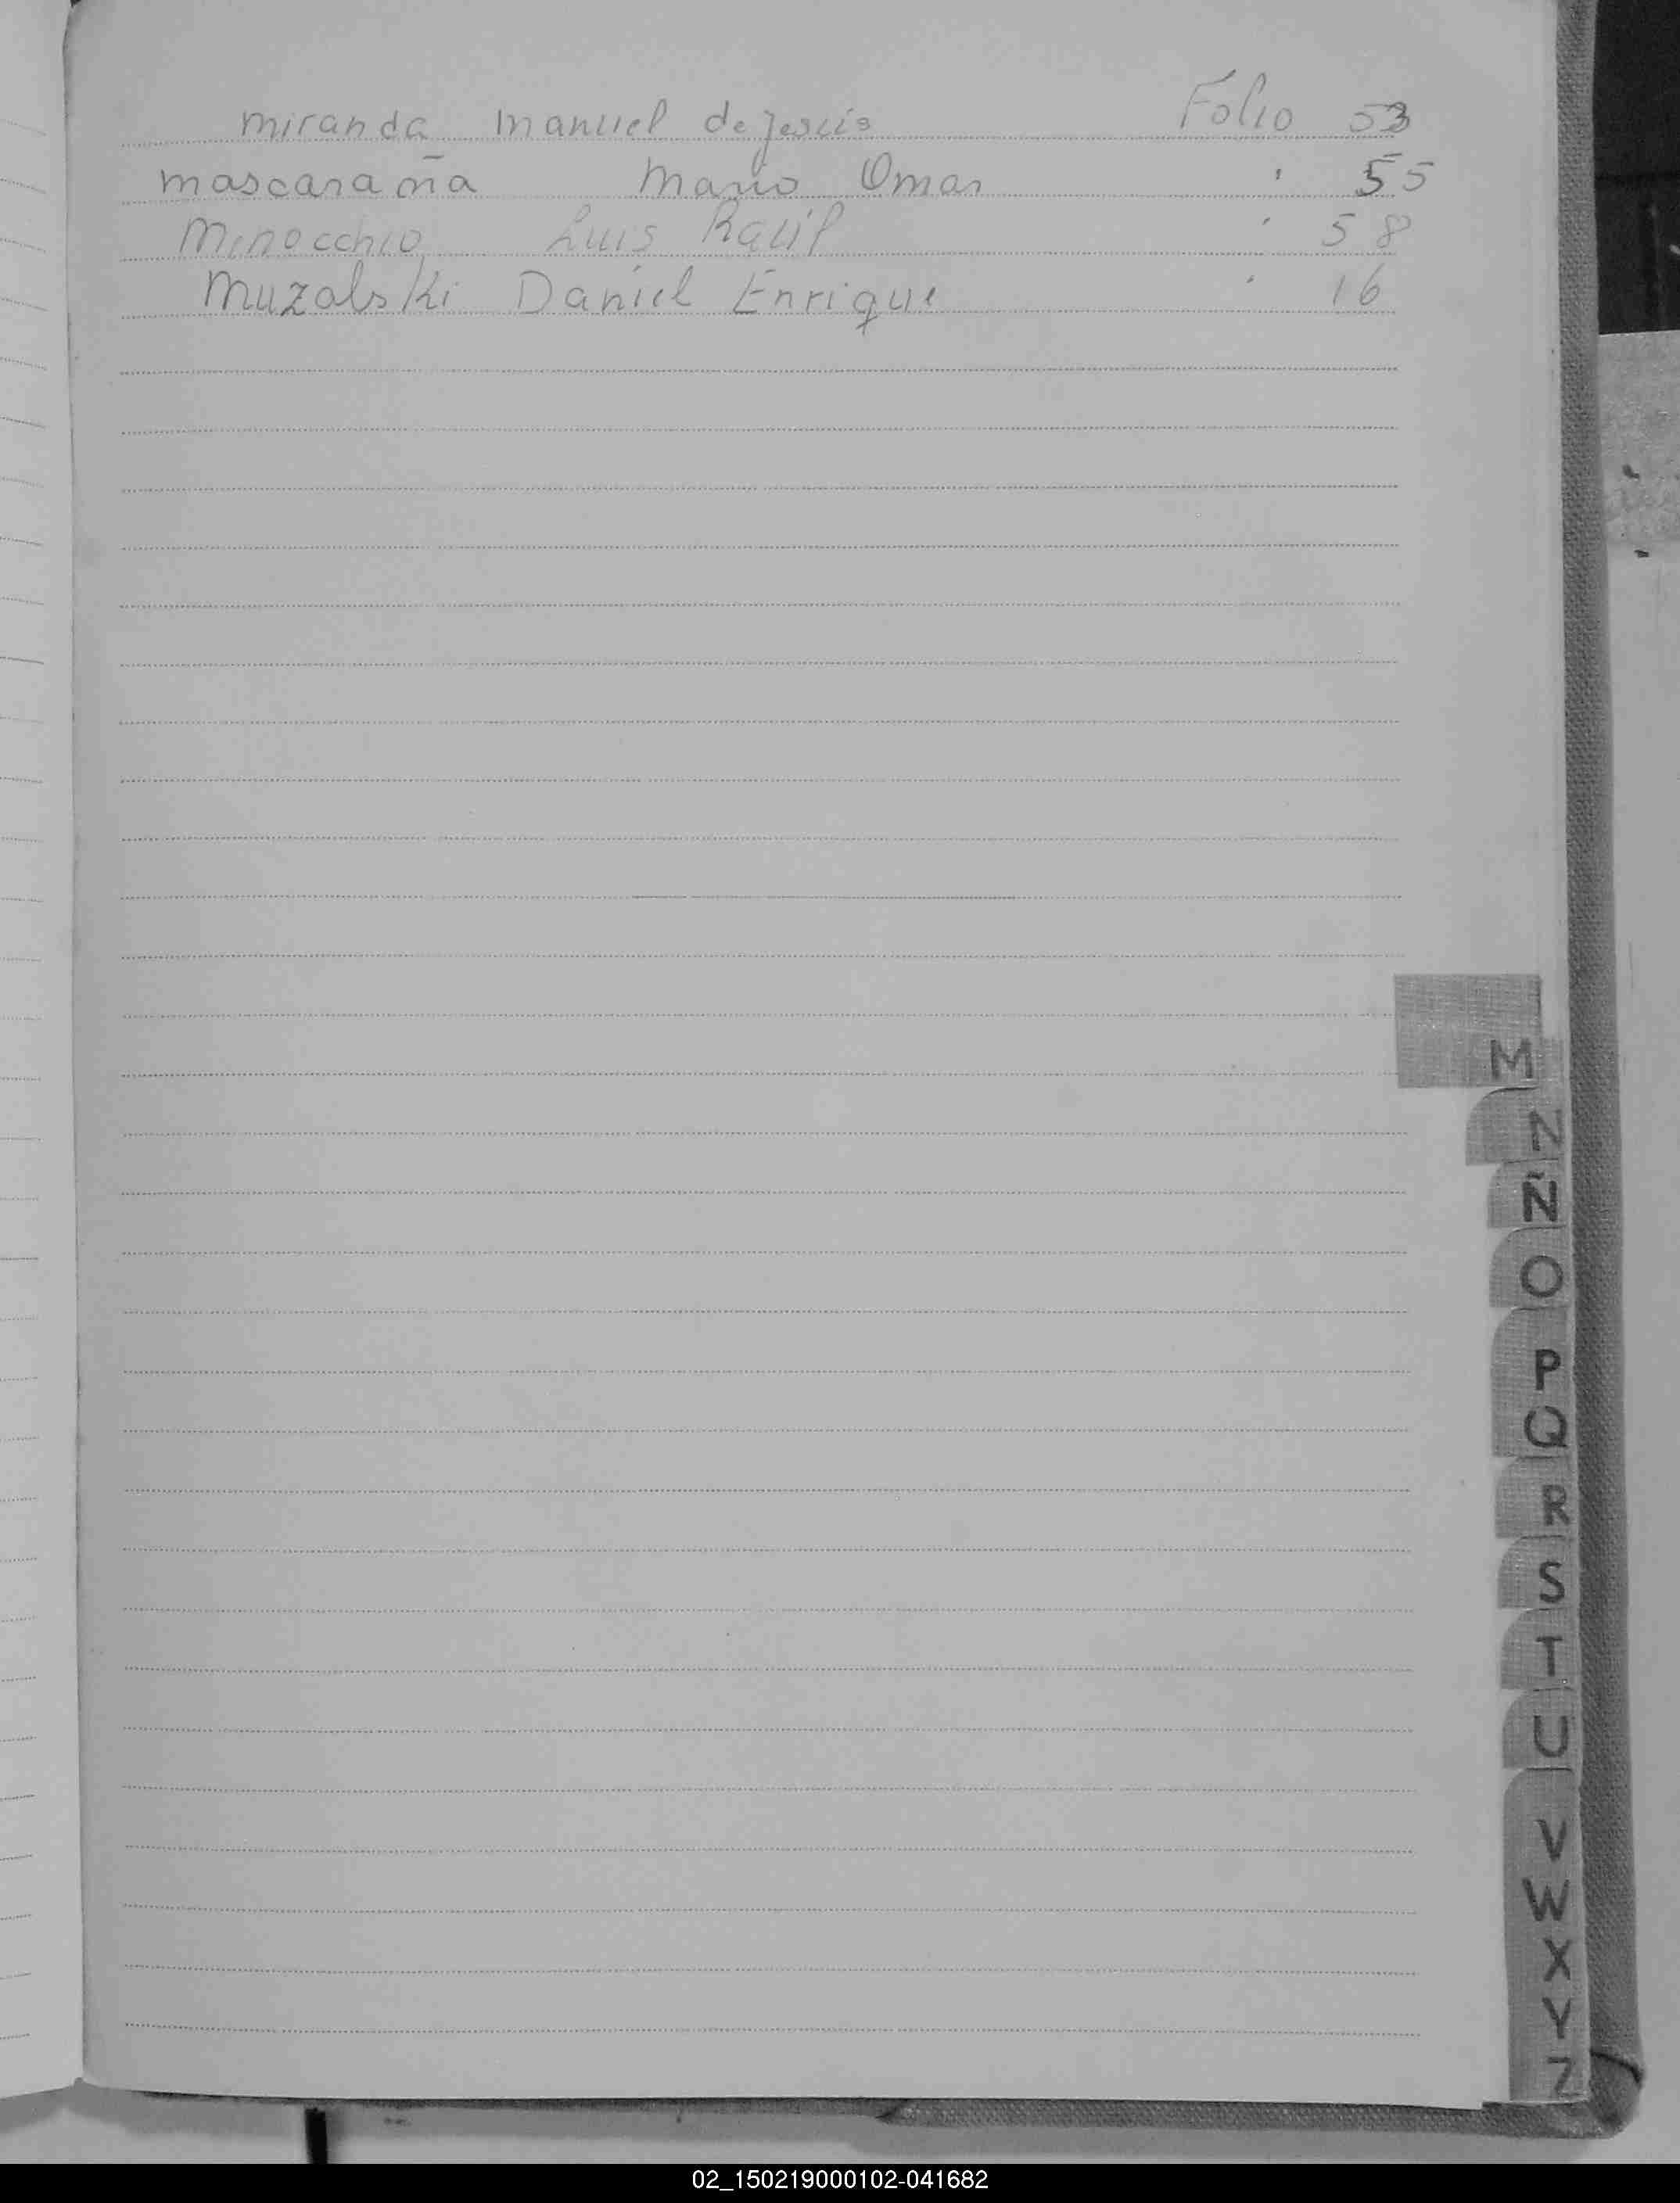 miranda manuel de Jesús Folio 53
mascaraña Mario Omar " 55
Minocchio Luis Raúl " 58
Muzalski Daniel Enrique " 16
M
N
Ñ
O
P
Q
R
S
T
U
V
W
X
Y
Z
02_150219000102-041682